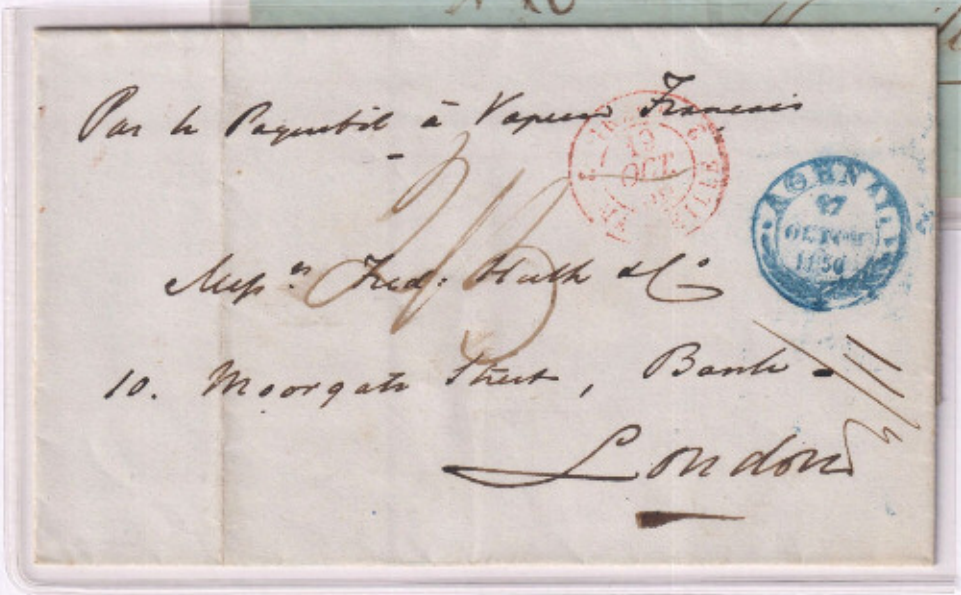 Par le Paquebot à Vapeur Français
19
OCT.
27
1850
Messrs Fred: Huth & Co
10. Moorgate Street, Bank -
London